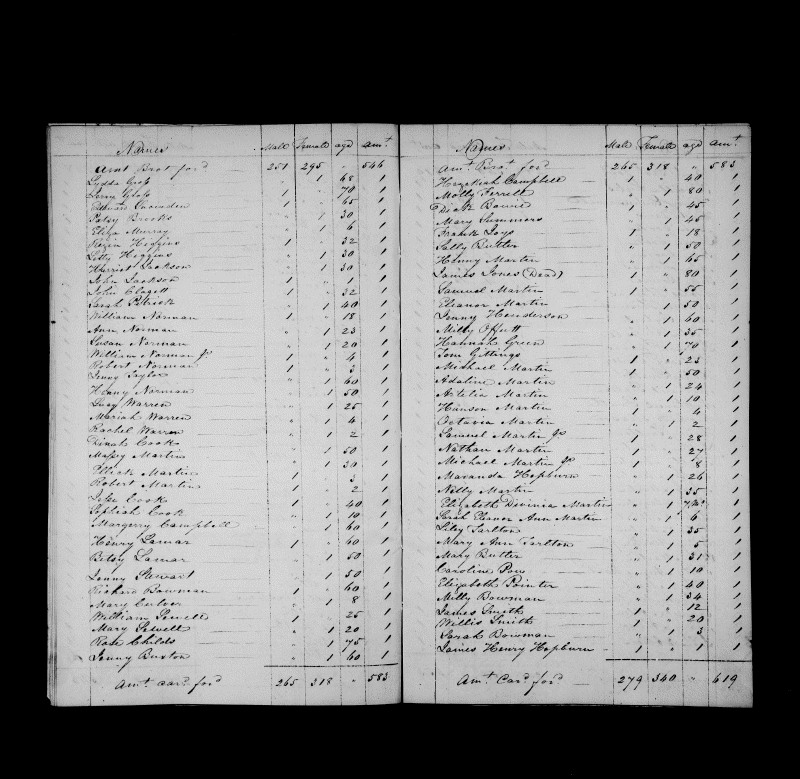 Names Male Female age Amt
Amt Brot ford 251 295 " 546
Lydda Gross " 1 68 1
Jerry Gross 1 " 70 1
Edward Snowden 1 " 65 1
Patsy Brooks " 1 30 1
Eliza Murray " 1 6 1
Rezin Higgins 1 " 32 1
Letty Higgins " 1 30 1
Harriet Jackson " 1 30 1
John Jackson 1 " 1 1
John Clagett 1 " 32 1
Sarah Patrick " 1 40 1
William Norman 1 " 18 1
Ann Norman " 1 23 1
Susan Norman " 1 20 1
William Norman Jr 1 " 4 1
Robert Norman 1 " 3 1
Jenny Taylor " 1 60 1
Henny Norman " 1 50 1
Lucy Warren " 1 25 1
Mariah Warren " 1 4 1
Rachel Warren " 1 2 1
Dinah Cook " 1 50 1
Massy Martin " 1 30 1
Martin 1 " 3 1
Robert Martin 1 " 2 1
Cook 1 " 40 1
Cook " 1 19 1
Margerry Campbell " 1 60 1
Henry Lamar 1 " 60 1
Betsy Lamar " 1 50 1
Jenny Stewart " 1 50 1
Richard Bowman 1 " 60 1
Mary Culver " 1 8 1
William Sewell 1 " 25 1
Mary Sewell " 1 20 1
Rose Childs " 1 75 1
Jenny Buxton " 1 60 1
Amt Card ford 265 318 " 583
Names Male Female age Amt
Amt Brot ford 265 318 " 583
Hezekiah Campbell 1 " 40 1
Molly Ferrell " 1 80 1
Dick Bowie 1 " 45 1
Mary Summers " 1 45 1
Frank Joys 1 " 18 1
Sally Butler " 1 50 1
Henny Martin " 1 65 1
James Jones (Dead) 1 " 80 1
Samuel Martin 1 " 55 1
Eleanor Martin " 1 50 1
Jenny Henderson " 1 60 1
Milly Offutt " 1 35 1
Hannah Green " 1 70 1
Tom Gittings 1 " 23 1
Michael Martin 1 " 50 1
Adaline Martin " 1 24 1
Martin " 1 10 1
Hanson Martin 1 " 4 1
Octavia Martin " 1 2 1
Samuel Martin Jr 1 " 28 1
Nathan Martin 1 " 27 1
Michael Martin Jr 1 " 8 1
Hepburn " 1 26 1
Nelly Martin " 1 35 1
Elizabeth Martin " 1 7 Ms 1
Sarah Eleanor Ann Martin " 1 6 1
Tarlton " 1 35 1
Mary Ann Tarlton " 1 5 1
Mary Butler " 1 31 1
Caroline " 1 10 1
Elizabeth Pointer " 1 40 1
Milly Bowman " 1 34 1
James Smith 1 " 12 1
Willis Smith 1 " 20 1
Sarah Bowman " 1 3 1
James Henry Hepburn 1 1 1
Amt Card ford 279 340 " 619